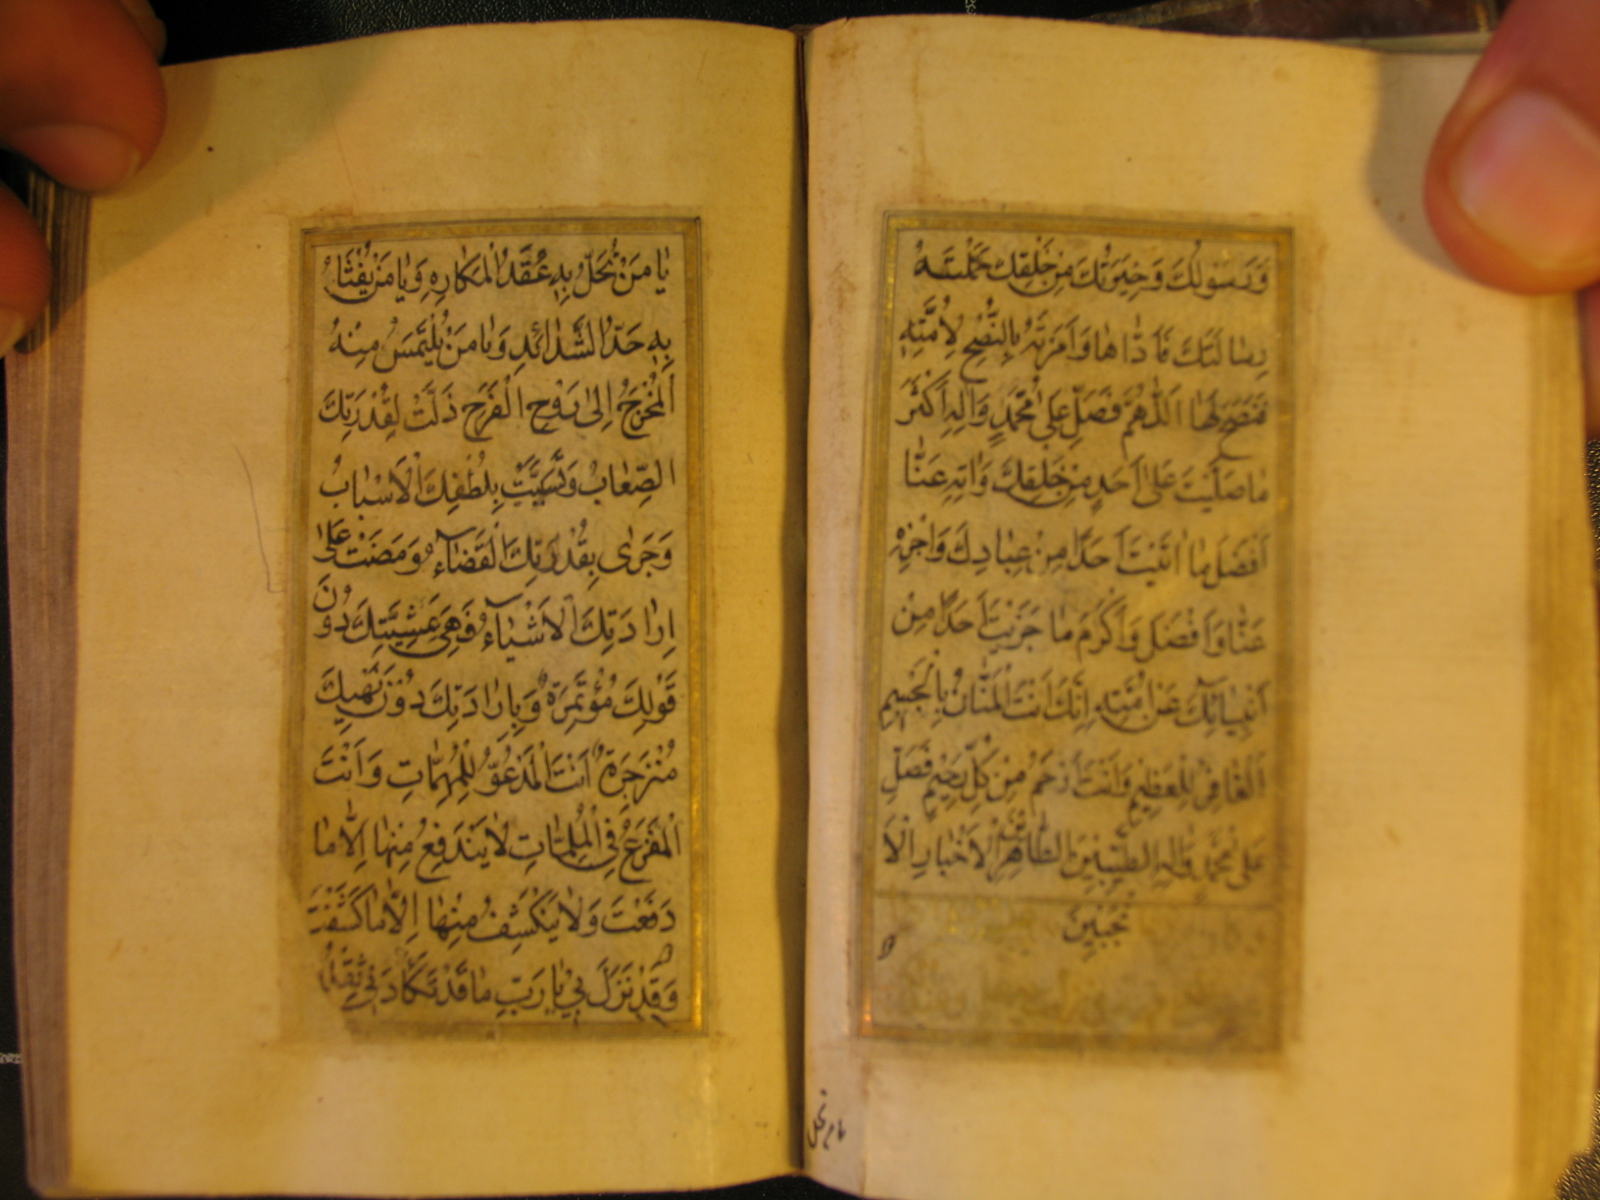 وَرَسُولِكَ وَخِيَرَتِكَ مِنْ خَلْقِكَ حَمَّلْتَهُ
رِسٰالَتَكَ فَاَدّٰاهٰا وَاَمَرْتَهُ بِالنُّصْحِ لِاُمَّتِهِ
فَنَصَحَ لَهٰا اَللّٰهُمَّ فَصَلِّ عَلىٰ مُحَمَّدٍ وَاٰلِهِ اَكْثَرَ
مٰا صَلَّيْتَ عَلىٰ اَحَدٍ مِنْ خَلْقِكَ وَاٰتِهِ عَنّٰا
اَفْضَلَ مٰا اٰتَيْتَ اَحَدًا مِنْ عِبٰادِكَ وَاجْزِهِ
عَنّٰا اَفْضَلَ وَاَكْرَمَ مٰا جَزَيْتَ اَحَدًا مِنْ
اَنْبِيٰائِكَ عَنْ اُمَّتِهِ اِنَّكَ اَنْتَ الْمَنّٰانُ بِالْجَسِيمِ
اَلْغٰافِرُ لِلْعَظِيمِ وَاَنْتَ اَرْحَمُ مِنْ كُلِّ رَحِيمٍ فَصَلِّ
عَلىٰ مُحَمَّدٍ وَاٰلِهِ الطَّيِّبِينَ الطّٰاهِرِينَ الْاَخْيٰارِ الْاَ
نْجَبِينَ
يٰا مَنْ تُحَلُّ بِهِ عُقَدُ الْمَكٰارِهِ وَيٰا مَنْ يُفْثَاُ
بِهِ حَدُّ الشَّدٰائِدِ وَيٰا مَنْ يُلْتَمَسُ مِنْهُ
اَلْمَخْرَجُ اِلىٰ رَوْحِ الْفَرَجِ ذَلَّتْ لِقُدْرَتِكَ
الصِّعٰابُ وَتَسَبَّبَتْ بِلُطْفِكَ الْاَسْبٰابُ
وَجَرٰى بِقُدْرَتِكَ الْقَضٰاءُ وَمَضَتْ عَلىٰ
اِرٰادَتِكَ الْاَشْيٰاءُ فَهِيَ بِمَشِيَّتِكَ دُونَ
قَوْلِكَ مُؤْتَمِرَةٌ وَبِاِرٰادَتِكَ دُونَ نَهْيِكَ
مُنْزَجِرَةٌ اَنْتَ الْمَدْعُوُّ لِلْمُهِمّٰاتِ وَاَنْتَ
الْمَفْزَعُ فِي الْمُلِمّٰاتِ لٰا يَنْدَفِعُ مِنْهٰا اِلّٰا مٰا
دَفَعْتَ وَلٰا يَنْكَشِفُ مِنْهٰا اِلّٰا مٰا كَشَفْتَ
وَقَدْ نَزَلَ بِي يٰا رَبِّ مٰا قَدْ تَكَاَّدَنِي ثِقْلُهُ